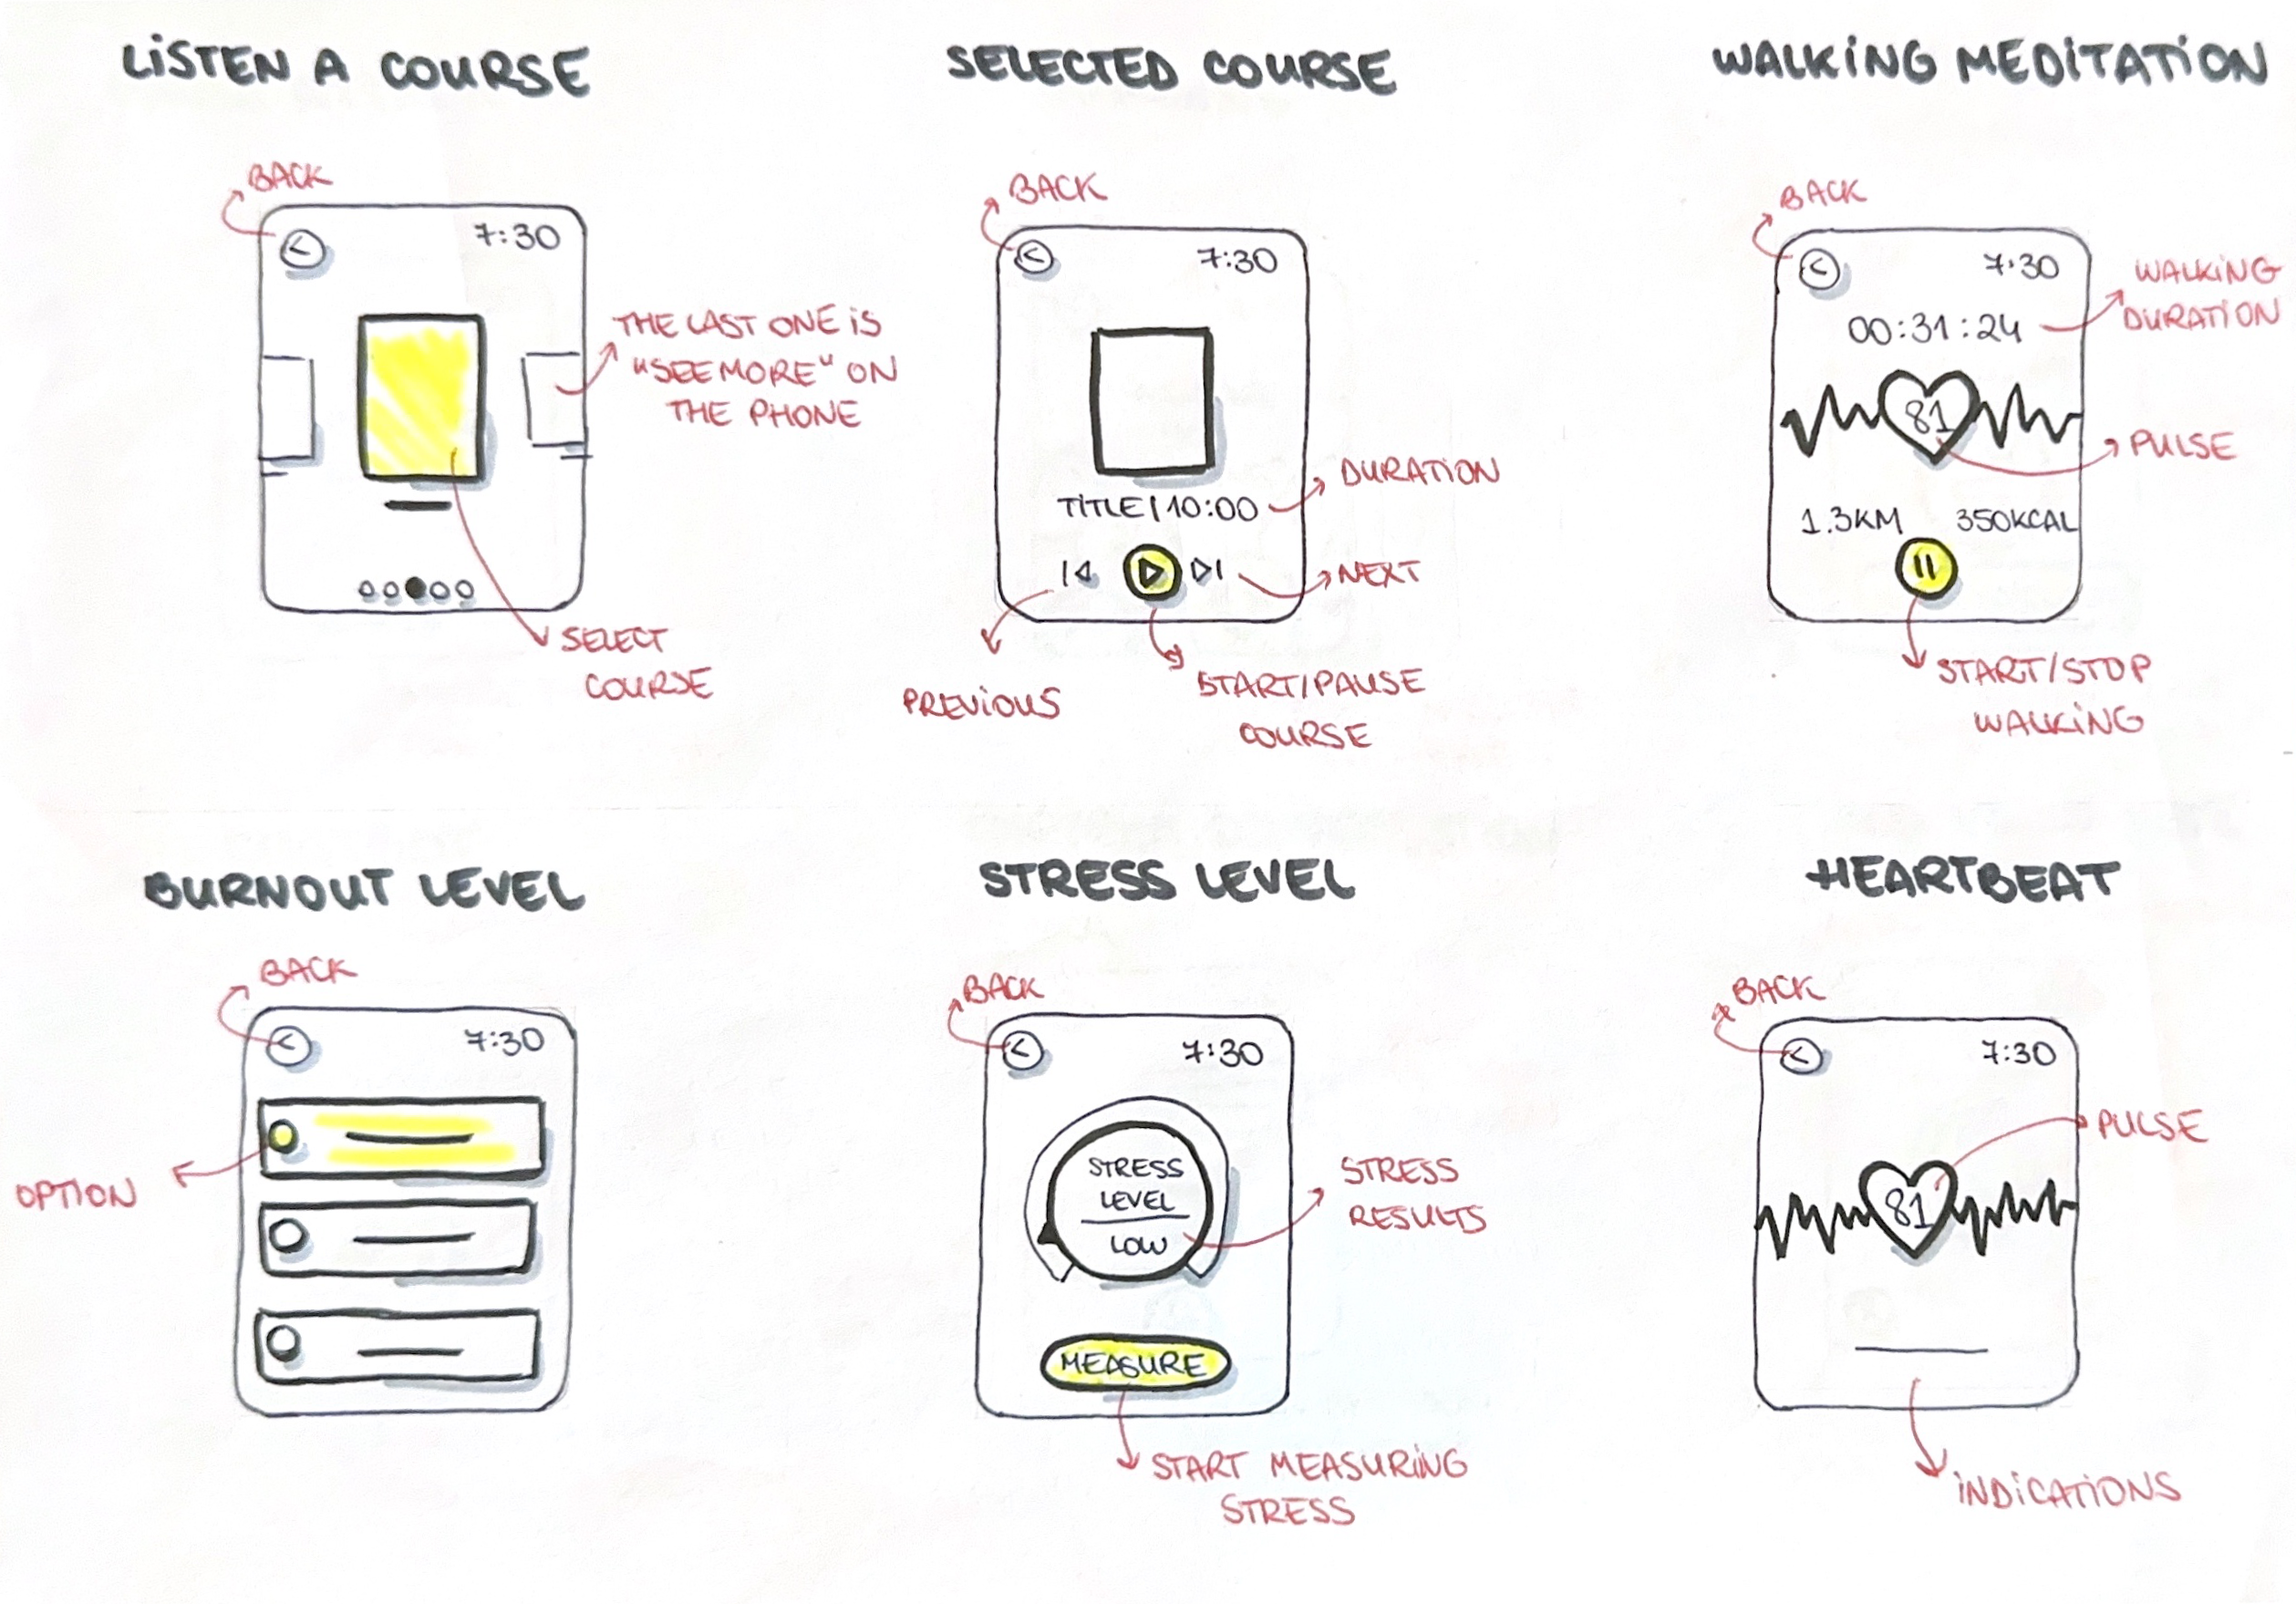 LISTEN A COURSE
BACK
7:30
THE LAST ONE IS
"SEE MORE" ON
THE PHONE
SELECT
COURSE
SELECTED COURSE
BACK
7:30
TITLE | 10:00
DURATION
NEXT
PREVIOUS
START/PAUSE
COURSE
WALKING MEDITATION
BACK
7:30
WALKING
DURATION
00:31:24
81
PULSE
1.3KM 350KCAL
START/STOP
WALKING
BURNOUT LEVEL
BACK
7:30
OPTION
STRESS LEVEL
BACK
7:30
STRESS
LEVEL
LOW
STRESS
RESULTS
MEASURE
START MEASURING
STRESS
HEARTBEAT
BACK
7:30
PULSE
81
INDICATIONS